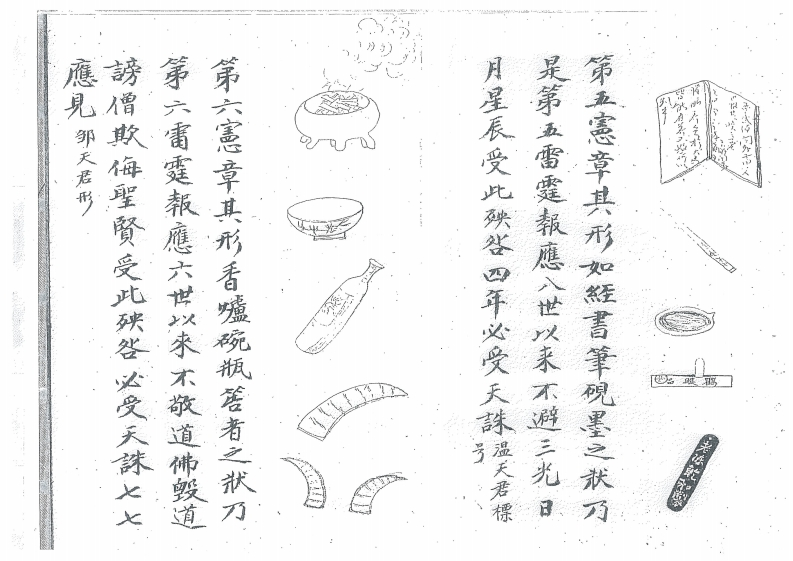 第五憲章其形如經書筆硯墨之狀乃
是第五雷霆報應八世以來不避三光日
月星辰受此殃咎四年必受天誅溫天君標
号
第六憲章其形香爐碗瓶筶者之狀乃
第六雷霆報應六世以來不敬道佛毀道
謗僧欺侮聖賢受此殃咎必受天誅七七
應見鄒天君形